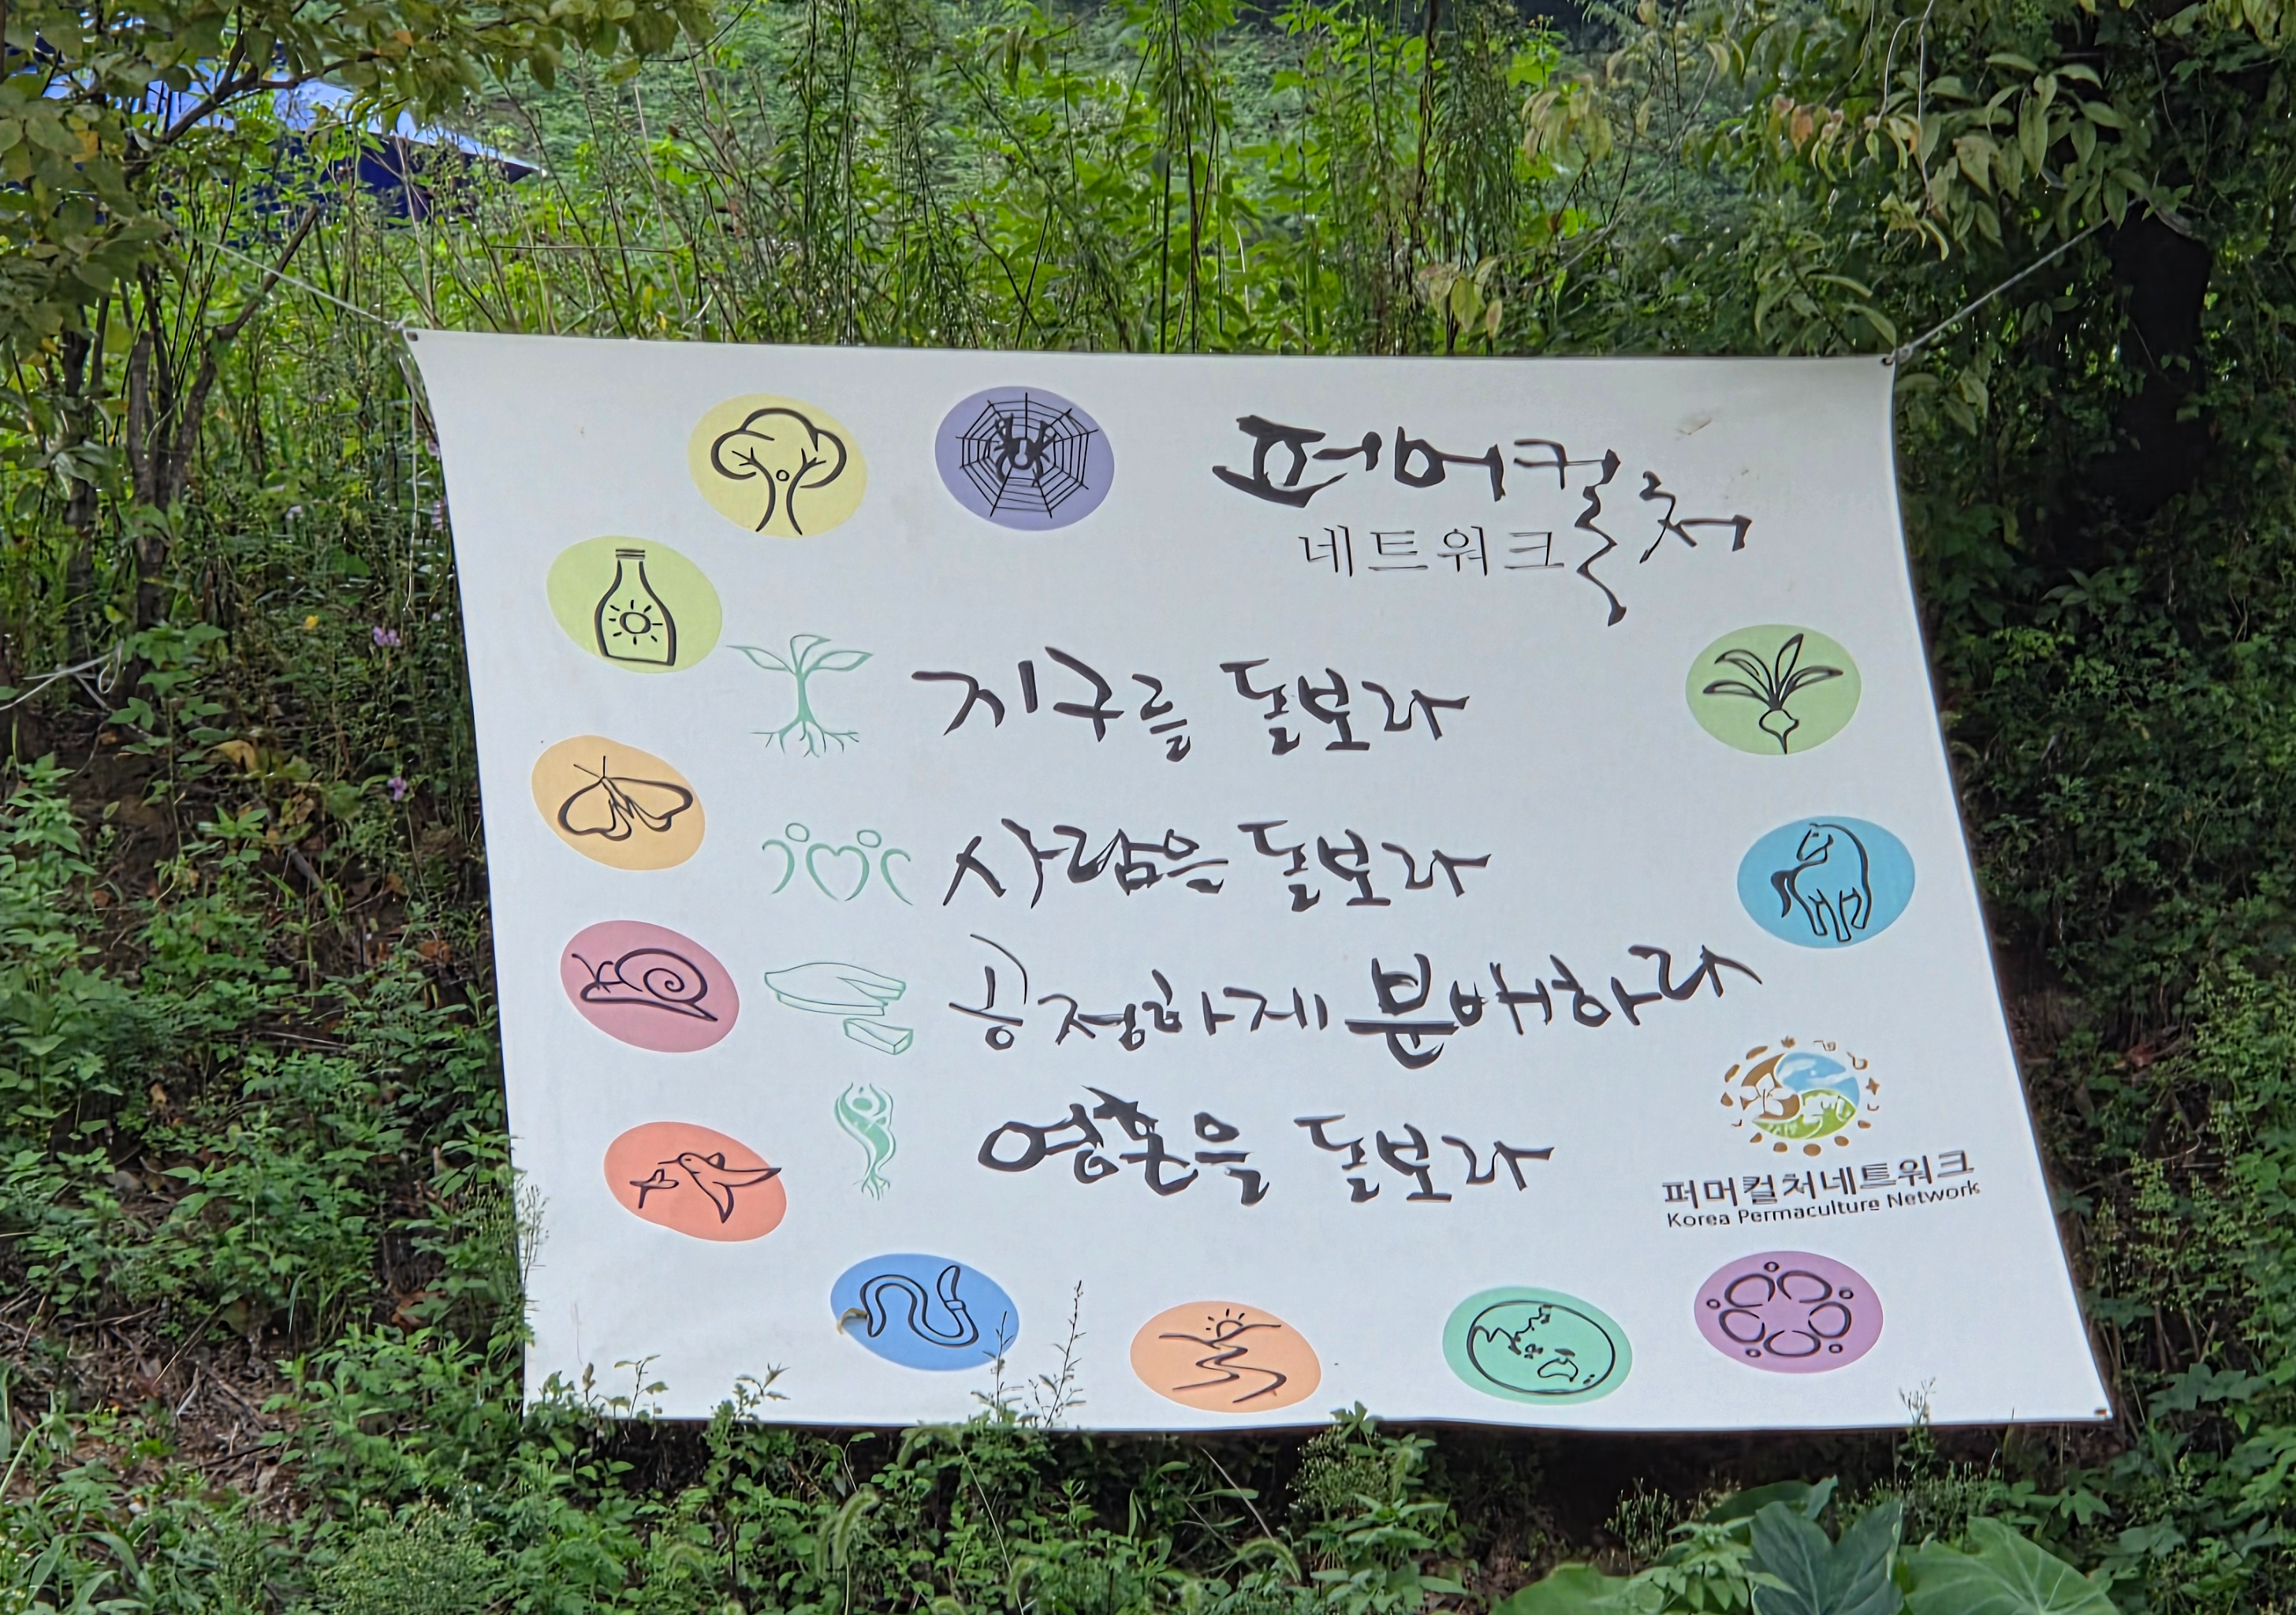 퍼머컬처
네트워크
지구를 돌보라
사람을 돌보라
공정하게 분배하라
영혼을 돌보라
퍼머컬처네트워크
Korea Permaculture Network